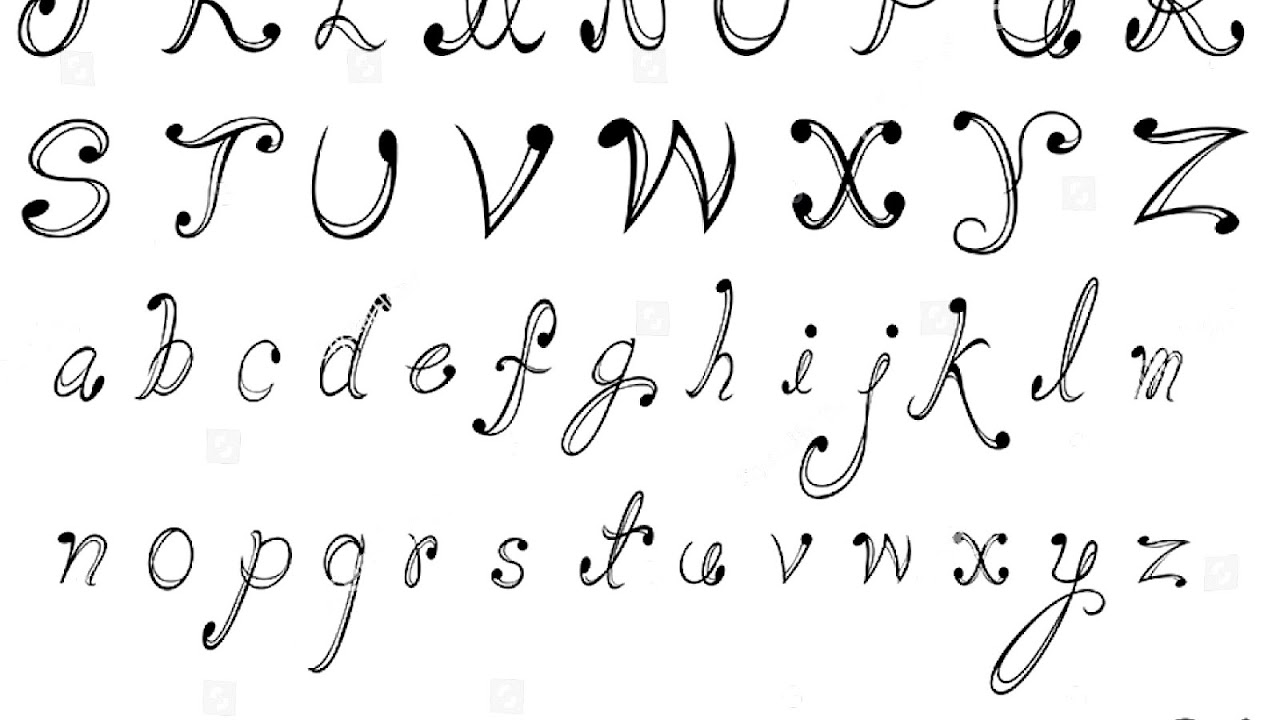 J K L M N O P Q R
S T U V W X Y Z
a b c d e f g h i j k l m
n o p q r s t u v w x y z